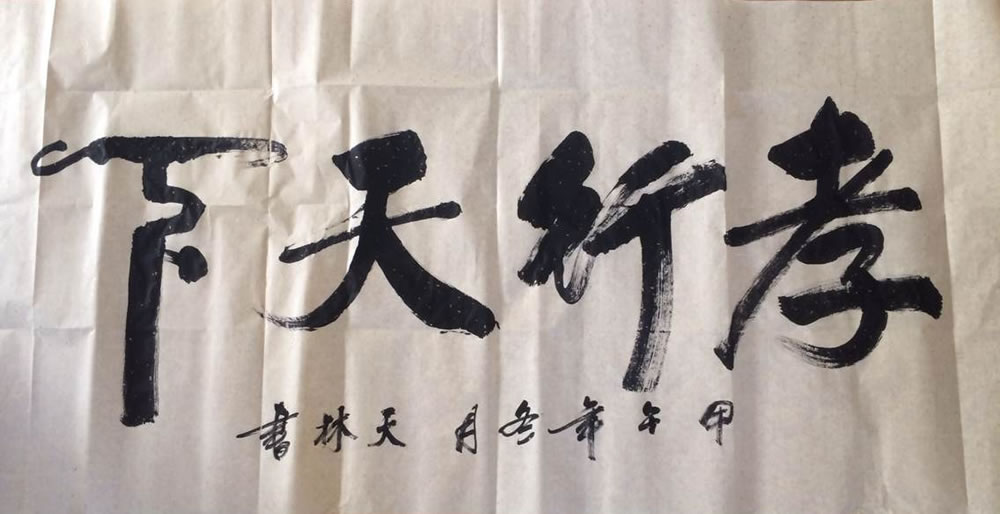 孝行天下
甲午年冬月 天林書